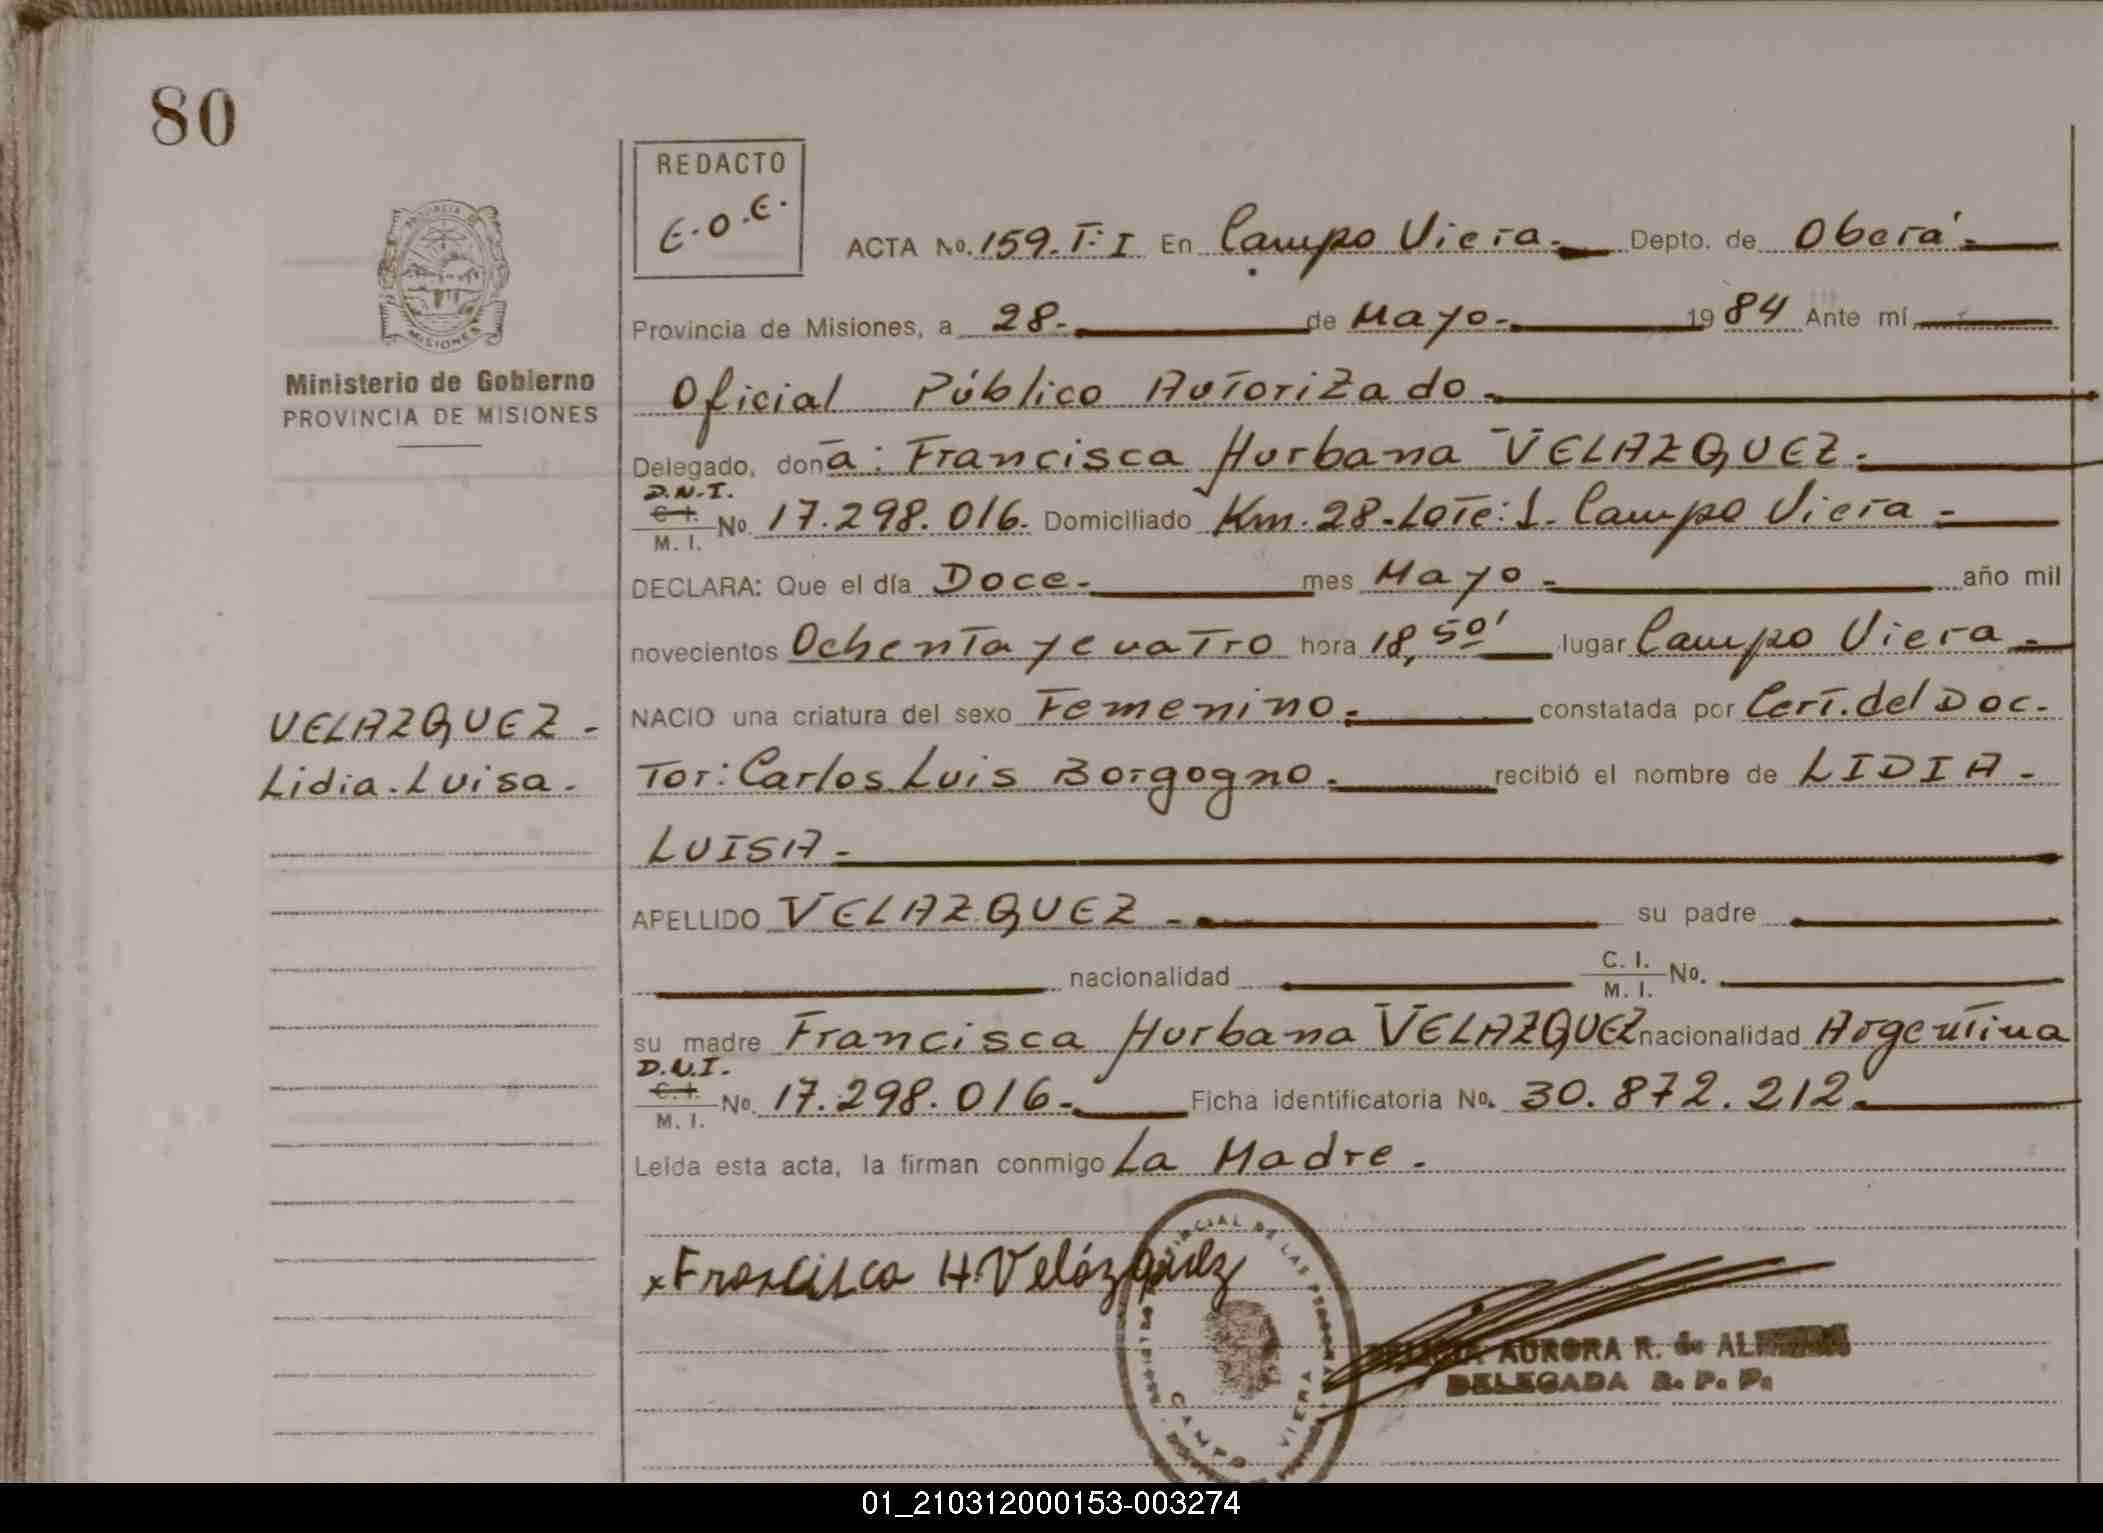 80
REDACTO
E.O.E.
ACTA No. 159. T: I En Campo Viera.- Depto. de Oberá.-
PROVINCIA DE MISIONES
Provincia de Misiones, a 28.- de Mayo.- 1984 Ante mí,
Ministerio de Gobierno
PROVINCIA DE MISIONES
Oficial Público Autorizado.-
Delegado, doña: Francisca Hurbana VELAZQUEZ.-
D.N.I.
C. I.
M. I.
No. 17.298.016. Domiciliado Km. 28-Lote: 1. Campo Viera.-
DECLARA: Que el día Doce.- mes Mayo.- año mil
novecientos Ochenta y cuatro hora 18,50' lugar Campo Viera.-
VELAZQUEZ.-
NACIO una criatura del sexo Femenino.- constatada por Cert. del Doc-
Lidia.Luisa.
Tor: Carlos Luis Borgogno.- recibió el nombre de LIDIA.-
LUISA.-
APELLIDO VELAZQUEZ.- su padre
nacionalidad C. I.
M. I. No.
su madre Francisca Hurbana VELAZQUEZ nacionalidad Argentina
D.N.I.
C. I.
M. I.
No. 17.298.016.- Ficha identificatoria No. 30.872.212.-
Leída esta acta, la firman conmigo La Madre.
x Francisca H. Velázquez
CAMPO VIERA
AURORA R. de
DELEGADA R. P. P.
01_210312000153-003274